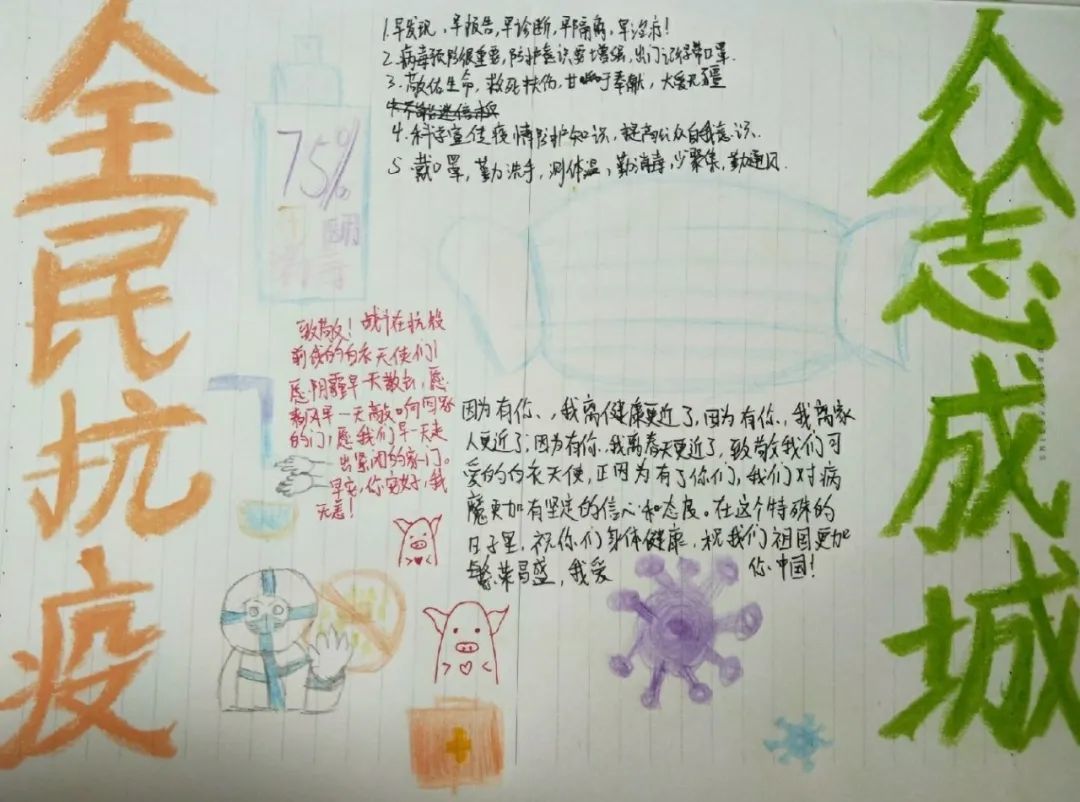 全民抗疫
1.早发现,早报告,早诊断,早隔离,早治疗!
2.病毒预防很重要,防护意识要增强,出门记得带口罩.
3.敬佑生命,救死扶伤,甘于奉献,大爱无疆
4.科学宣传疫情防护知识,提高公众自我意识.
5.戴口罩,勤洗手,测体温,勤消毒,少聚集,勤通风.
75%
众志成城
致敬!战斗在抗疫
前线的白衣天使们!
愿阴霾早一天散去,愿
春风早一天敲响回家
的门,愿我们早一天走
出紧闭的家门。
早安,你安好,我
无恙!
因为有你,,我离健康更近了,因为有你,,我离家
人更近了,因为有你,我离春天更近了,致敬我们可
爱的白衣天使,正因为有了你们,我们对病
魔更加有坚定的信心和态度。在这个特殊的
日子里,祝你们身体健康,祝我们祖国更加
繁荣昌盛,我爱你中国!